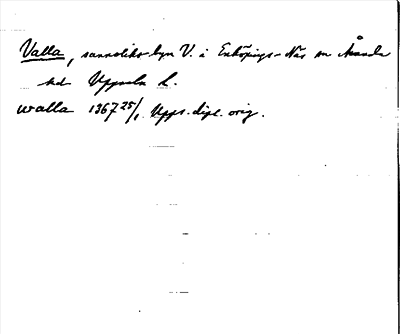 Valla, sannolikt byn V. i Enköpings-Näs sn Åsunda
hd Uppsala L.
walla 1367 25/1 Upps. dipl. orig.